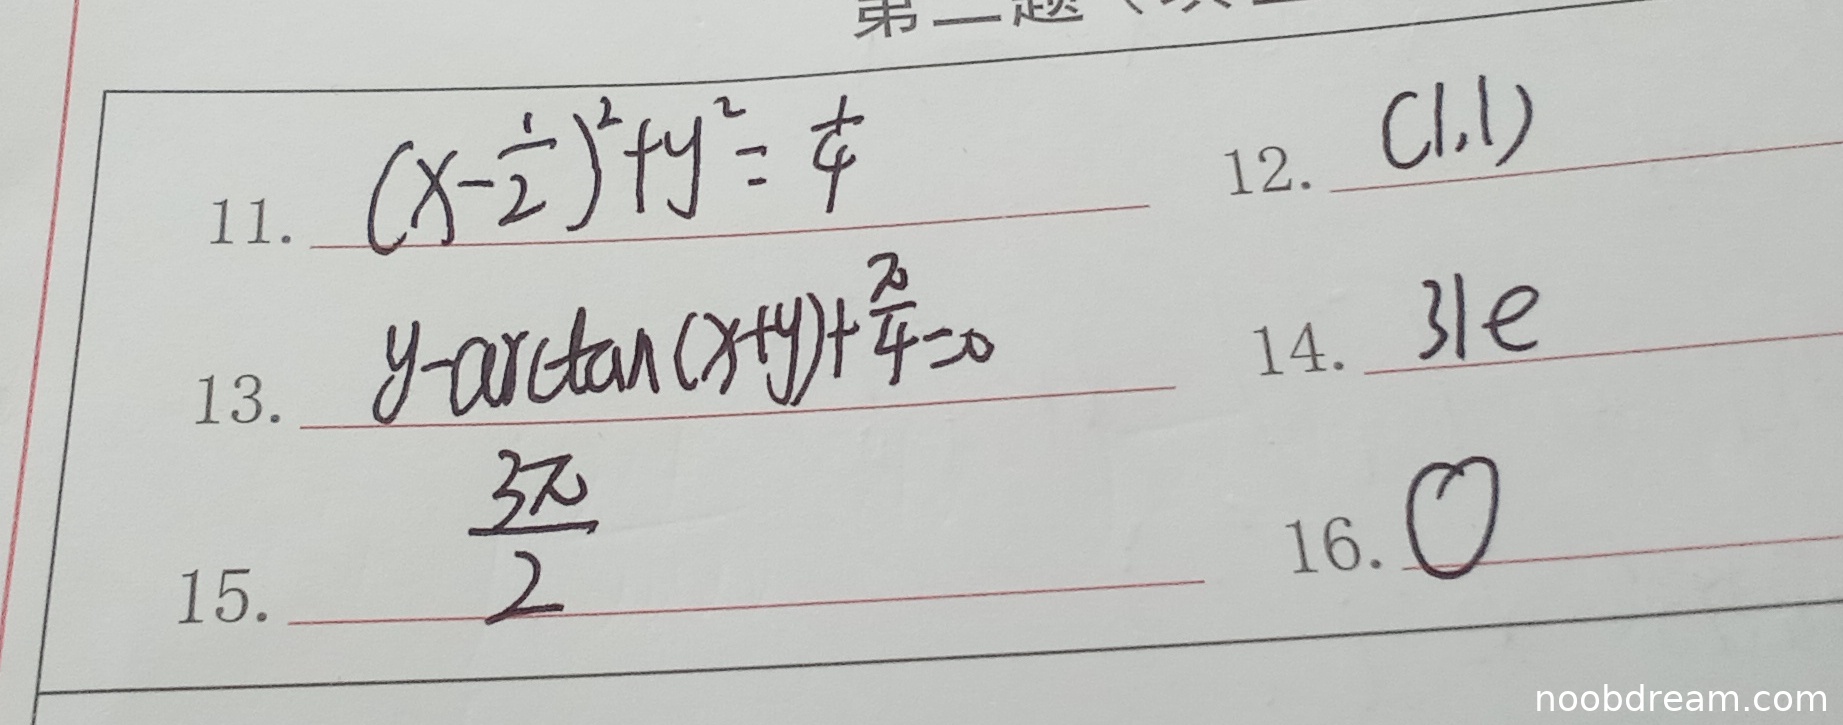 第二题
11. (x-1/2)²+y²=1/4 12. (1,1)
13. y-arctan(x+y)+π/4=0 14. 31e
15. 3π/2 16. 0
noobdream.com